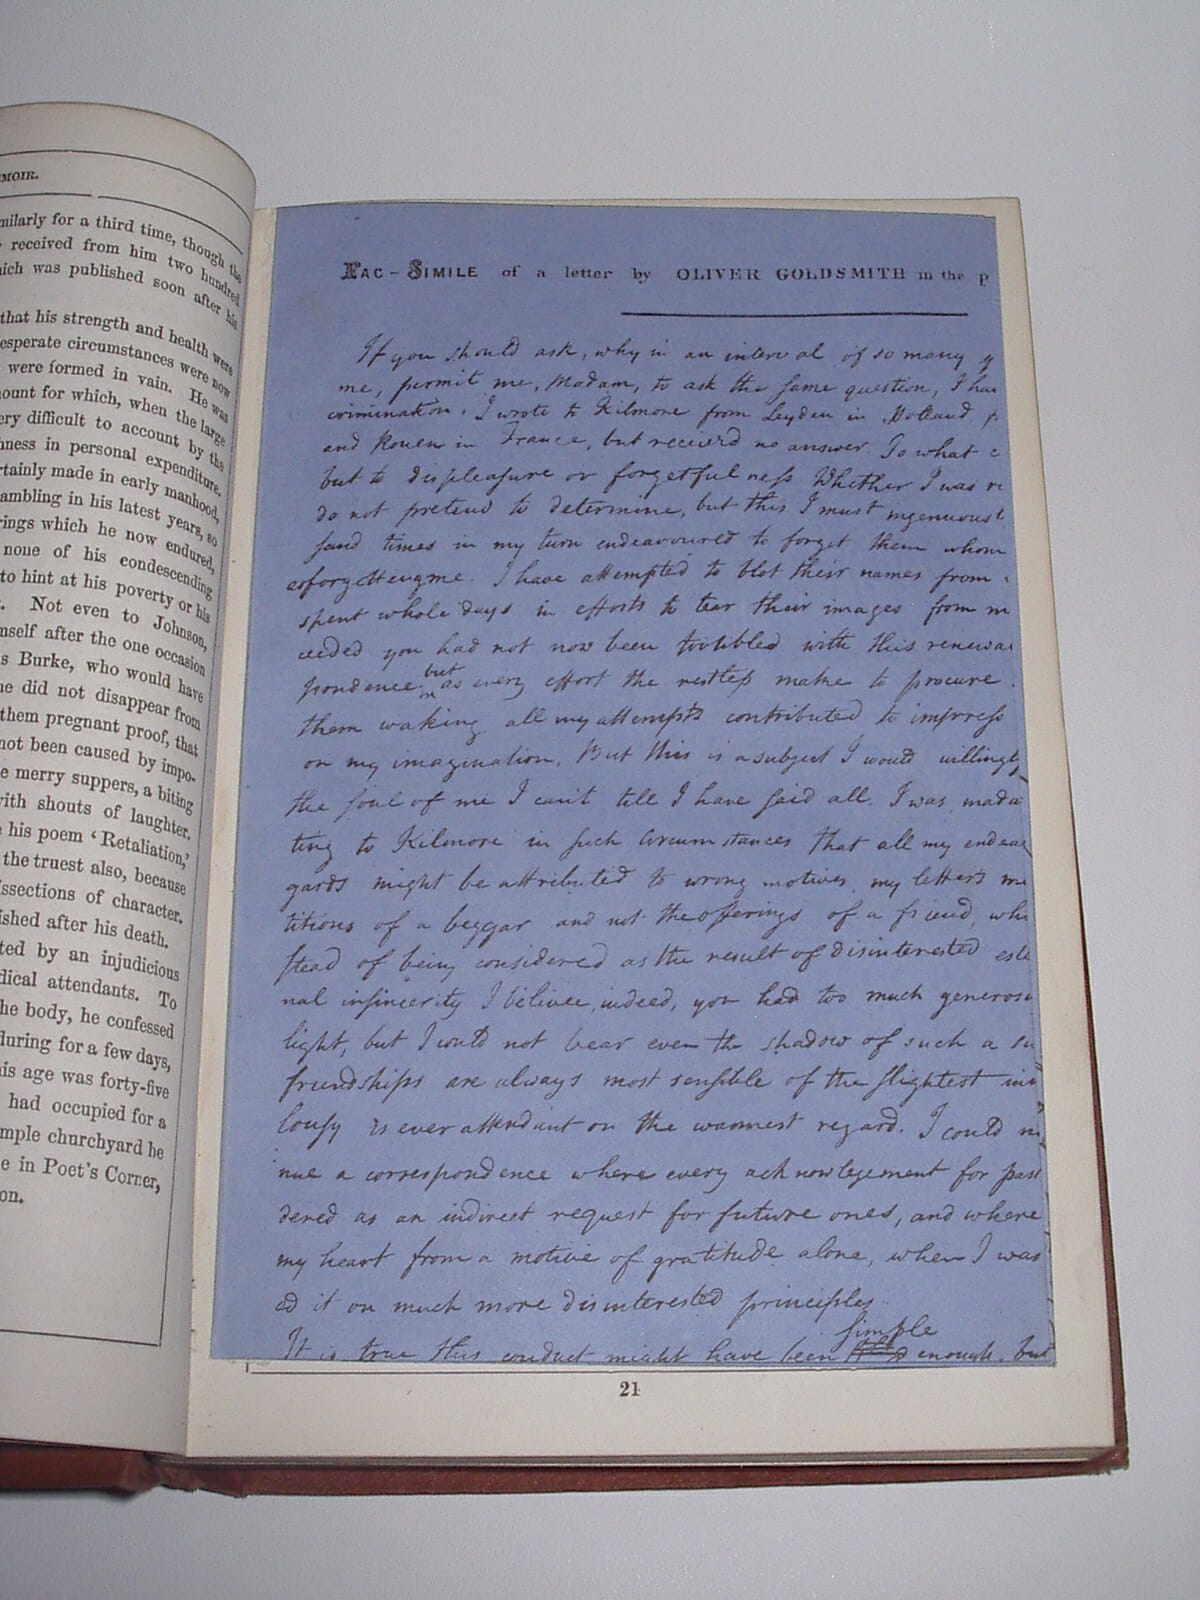 MOIR.
milarly for a third time, though the
received from him two hundred
ich was published soon after his
that his strength and health were
esperate circumstances were now
were formed in vain. He was
ount for which, when the large
ery difficult to account by the
hness in personal expenditure.
rtainly made in early manhood,
ambling in his latest years, so
rings which he now endured,
none of his condescending
to hint at his poverty or his
. Not even to Johnson,
mself after the one occasion
s Burke, who would have
he did not disappear from
them pregnant proof, that
not been caused by impo-
e merry suppers, a biting
with shouts of laughter.
his poem ‘Retaliation,’
the truest also, because
issections of character.
ished after his death.
ted by an injudicious
dical attendants. To
he body, he confessed
during for a few days,
his age was forty-five
had occupied for a
mple churchyard he
e in Poet's Corner,
on.
FAC-SIMILE of a letter by OLIVER GOLDSMITH in the p
If you should ask, why in an interval of so many y
me, permit me, Madam, to ask the same question, I hav
crimination. I wrote to Kilmore from Leyden in Holland,
and Rouen in France, but received no answer. To what c
but to displeasure or forgetfulness Whether I was ri
do not pretend to determine, but this I must ingenuous
sand times in my turn endeavoured to forget them whom
as forgetting me. I have attempted to blot their names from
spent whole days in efforts to tear their images from m
ceeded you had not now been troubled with this renewa
pondence but as every effort the restless make to procure
them waking all my attempts contributed to impress
on my imagination. But this is a subject I would willingly
the soul of me I can't till I have said all. I was, mada
ting to Kilmore in such circumstances that all my endea
gards might be attributed to wrong motives, my letters mi
titions of a beggar and not the offerings of a friend, whi
stead of being considered as the result of disinterested este
nal insincerity I believe, indeed, you had too much generosi
light, but I could not bear even the shadow of such a su
friendships are always most sensible of the slightest inv
lousy is ever attendant on the warmest regard. I could n
nue a correspondence where every acknowlegement for past
dered as an indirect request for future ones, and where
my heart from a motive of gratitude alone, when I was
ed it on much more disinterested principles
It is true this conduct might have been simple enough, but
21